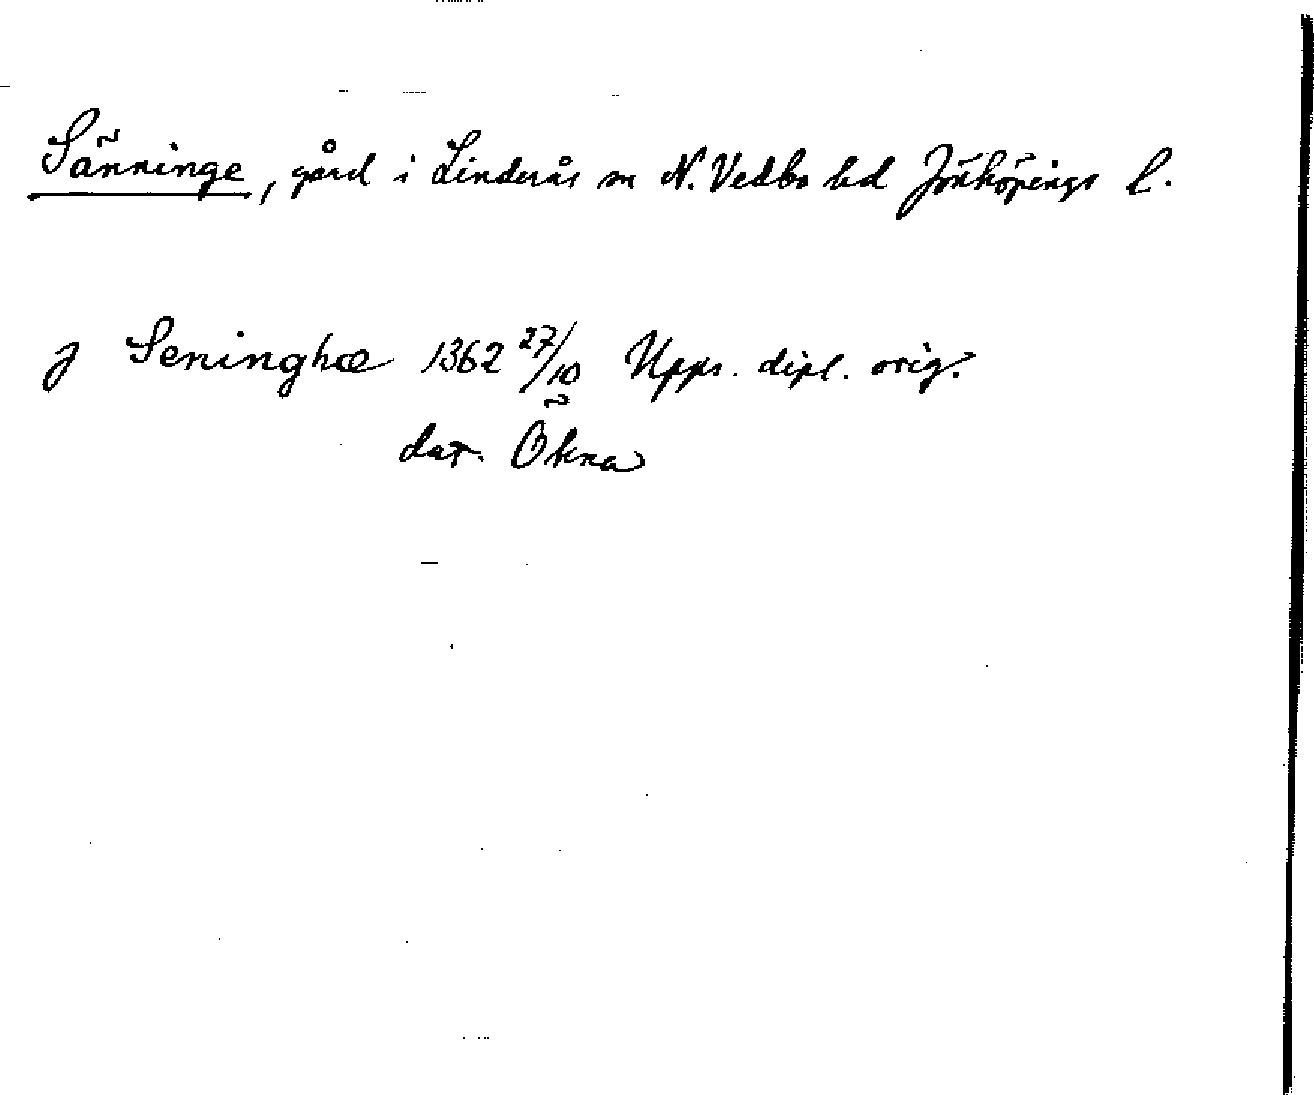 Sänninge, gård i Linderås sn N. Vedbo hd Jönköpings l.
j Seninghæ 1362 27/10 Upps. dipl. orig.
dat. Ökna